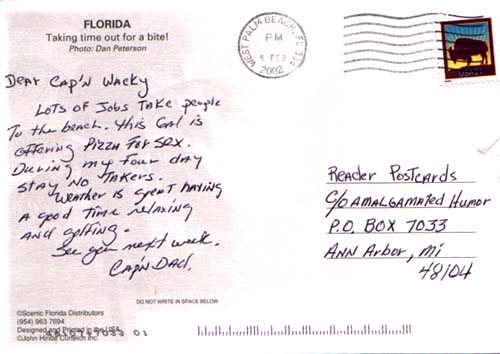 FLORIDA
Taking time out for a bite!
Photo: Dan Peterson
WEST PALM BEACH, FL 334
PM
5 FEB
2002
USA21
Dear Cap'n Wacky
Lots of Jobs Take people
To the beach. This Gal is
offering Pizza For Sex.
During my four day
stay No Takers.
Weather is great having
A good time relaxing
And golfing.
See you next week.
Cap'n Dad.
Reader Postcards
c/o Amalgamated Humor
P.O. Box 7033
Ann Arbor, Mi
48104
DO NOT WRITE IN SPACE BELOW
©Scenic Florida Distributors
(954) 963 7694
Designed and Printed in the USA
©John Hinde Curteich Inc.